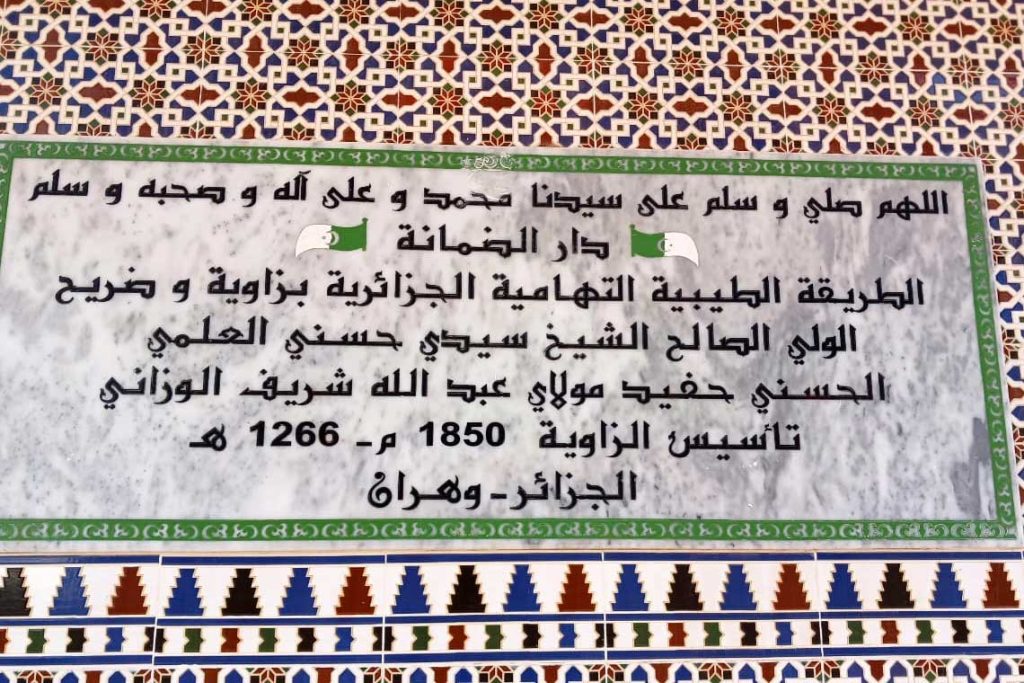 اللهم صلي و سلم على سيدنا محمد و على آله و صحبه و سلم
دار الضمانة
الطريقة الطيبية التهامية الجزائرية بزاوية و ضريح
الولي الصالح الشيخ سيدي حسني العلمي
الحسني حفيد مولاي عبد الله شريف الوزاني
تأسيس الزاوية 1850 م - 1266 هـ
الجزائر - وهران